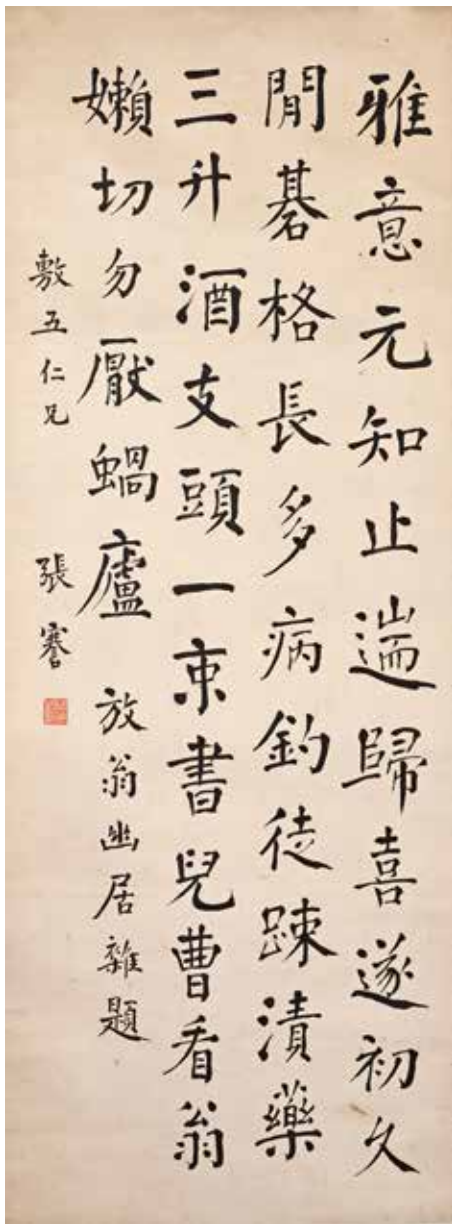 雅意元知止遄歸喜遂初久
閒棊格長多病釣徒踈漬藥
三升酒支頭一束書兒曹看翁
嬾切勿厭蝸廬 放翁幽居雜題
敷五仁兄 張謇